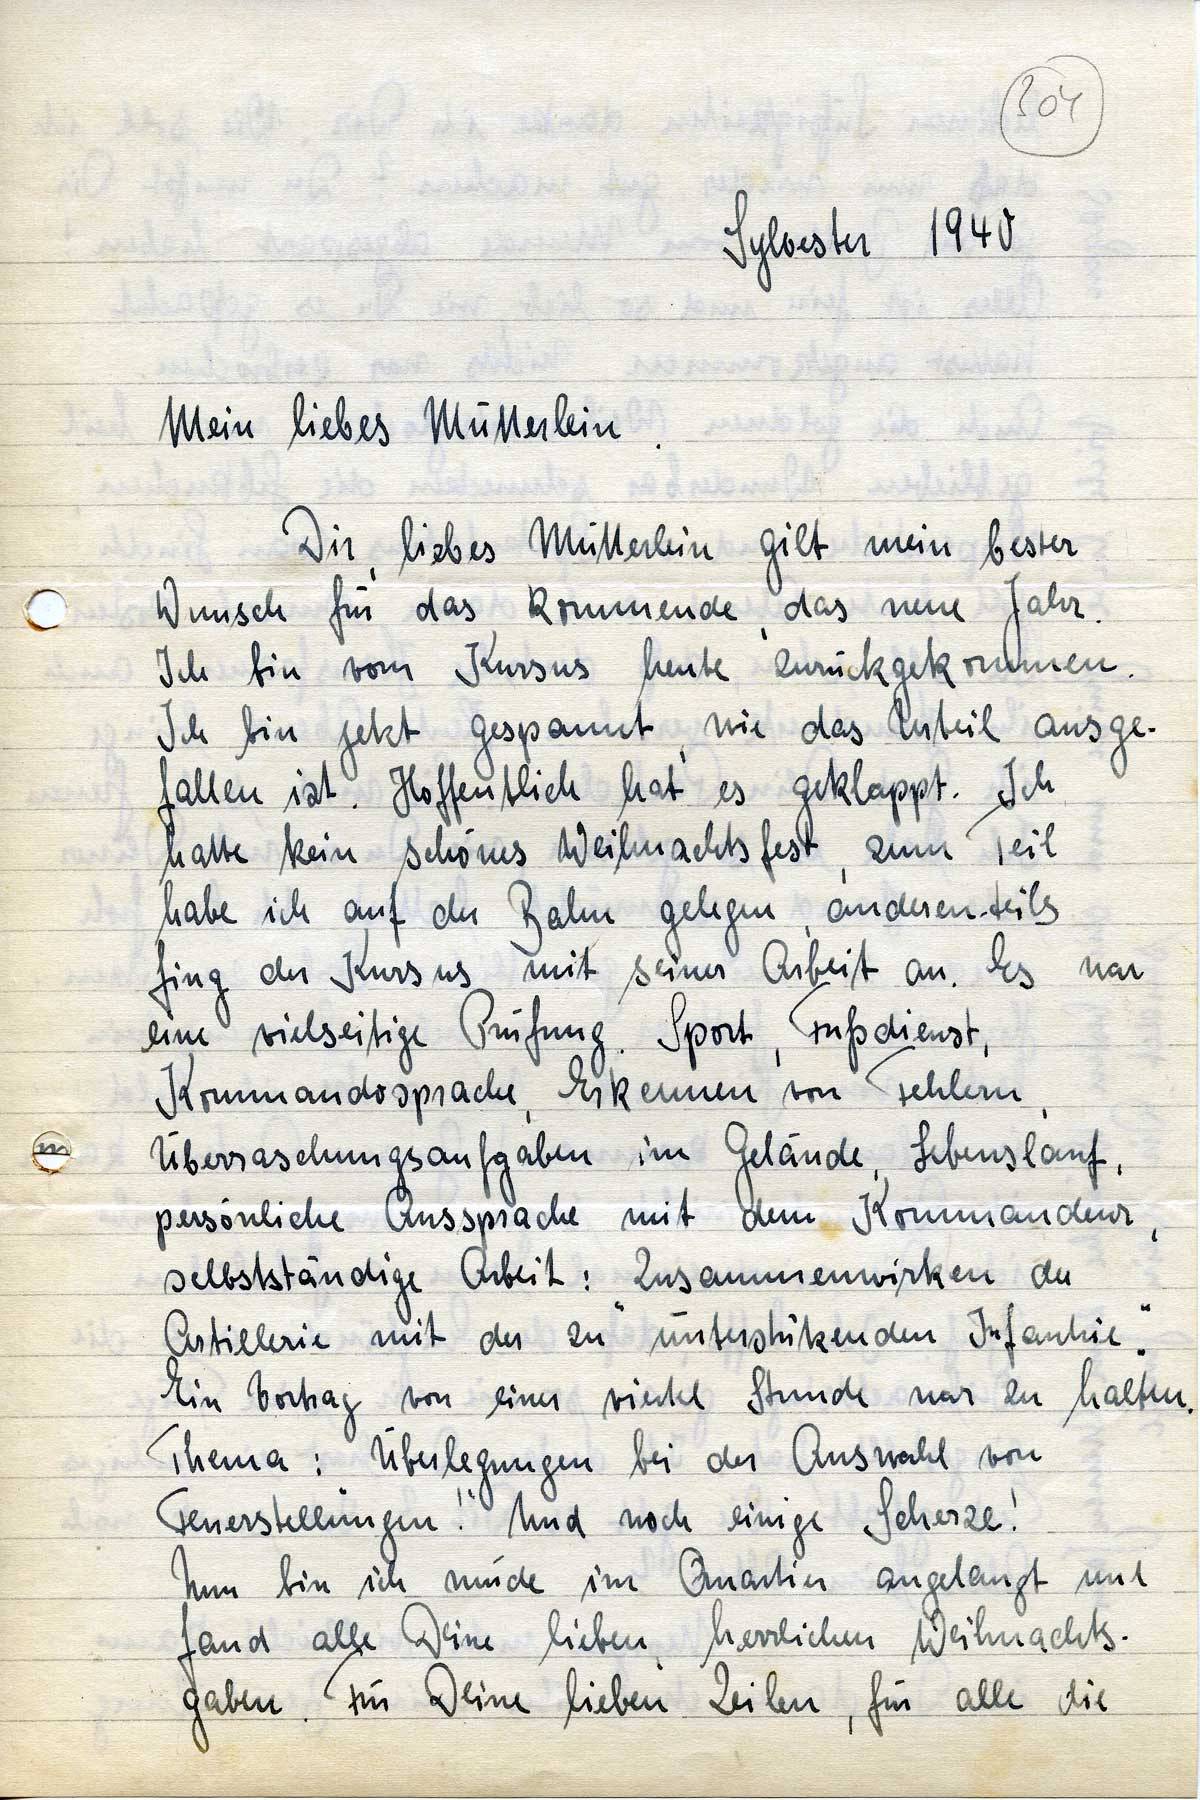 304
Sylvester 1940
Mein liebes Mütterlein.
Dir, liebes Mütterlein gilt mein bester
Wunsch für das kommende, das neue Jahr.
Ich bin vom Kursus heute zurückgekommen.
Ich bin jetzt gespannt, wie das Urteil ausge-
fallen ist. Hoffentlich hat es geklappt. Ich
hatte kein schönes Weihnachtsfest, zum Teil
habe ich auf der Bahn gelegen, anderen-teils
fing der Kursus mit seiner Arbeit an. Es war
eine vielseitige Prüfung. Sport, Fußdienst,
Kommandosprache, Erkennen von Fehlern,
Überraschungsaufgaben im Gelände, Lebenslauf,
persönliche Aussprache mit dem Kommandeur,
selbstständige Arbeit: Zusammenwirken der
Artillerie mit der zu "unterstützenden Infantrie".
Ein Vortrag von einer viertel Stunde war zu halten.
Thema: Überlegungen bei der Auswahl von
Feuerstellungen!" Und noch einige Scherze!
Nun bin ich müde im Quartier angelangt und
fand alle Deine lieben, herrlichen Weihnachts-
gaben. Für Deine lieben Zeilen, für alle die